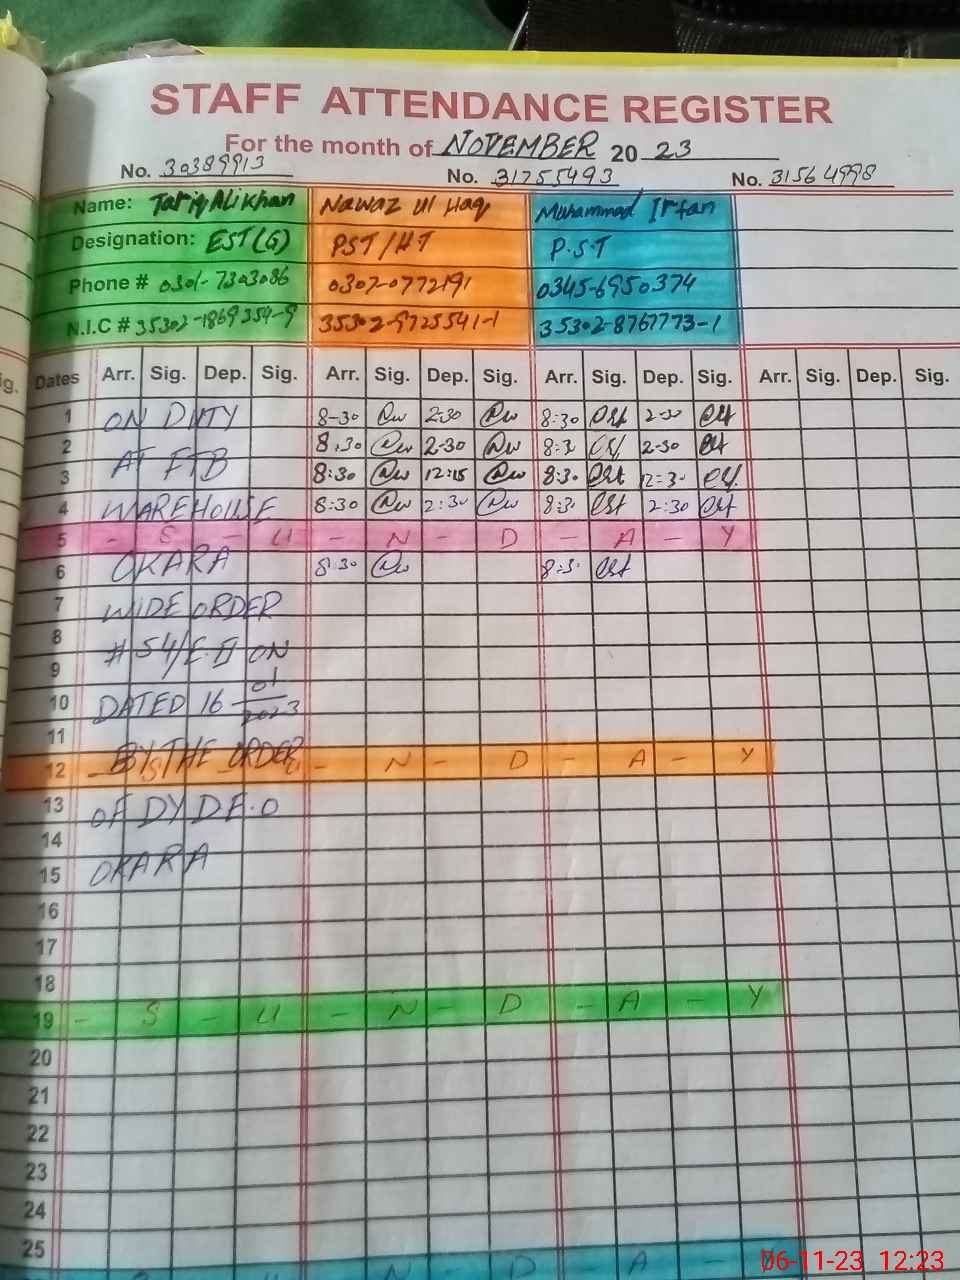 STAFF ATTENDANCE REGISTER
For the month of NOVEMBER 20 23
No. 30389913 No. 31755493 No. 31564998
Name: Tariq Ali Khan Nawaz ul Haq Muhammad Irfan
Designation: EST(G) PST/HT P.S.T
Phone # 0301-7303086 0307-0772191 0345-6950374
N.I.C # 35302-1869354-9 35302-9725541-1 35302-8767773-1
ig. Dates Arr. Sig. Dep. Sig. Arr. Sig. Dep. Sig. Arr. Sig. Dep. Sig. Arr. Sig. Dep. Sig.
1 ON DUTY 8-30 2-30 8:30 2-30
2 8:30 2-30 8:3 2-30
AT FTB
3 8:30 12:15 8:30 12:30
4 WAREHOUSE 8:30 2:30 8:3 2:30
5 - S - U - N - D - A - Y
6 OKARA 8:30 8:3
7 WIDE ORDER
8
# 54/E-II ON
9
10 DATED 16 01 2023
11
BY THE ORDER
12 - S - U - N - D - A - Y
13 OF DY D.E.O
14
15 OKARA
16
17
18
19 - S - U - N - D - A - Y
20
21
22
23
24
25
S U N D A -
06-11-23 12:23